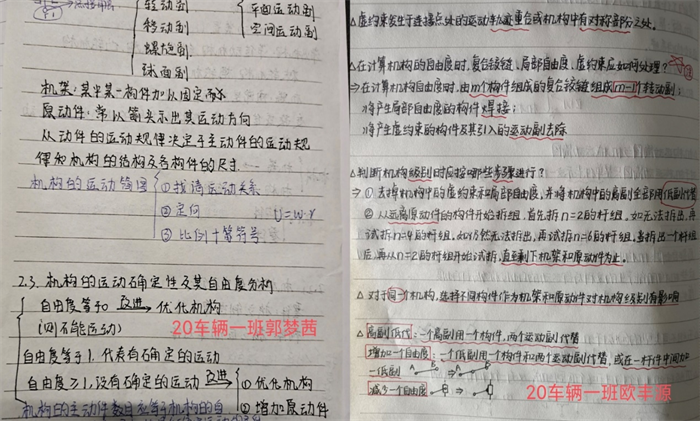 转动副
移动副
螺旋副
球面副
平面运动副
空间运动副
机架:某某一构件加以固定
原动件:常以箭头示出其运动方向
从动件的运动规律决定于主动件的运动规
律和机构的结构及各构件的尺寸.
机构的运动简图
①找清运动关系
②定向
③比例+符号
2.3. 机构的运动确定性及其自由度分析
自由度等于0 改进→ 优化机构
(则不能运动)
20车辆一班郭梦茜
自由度等于1. 代表有确定的运动
自由度≥1,没有确定的运动 改进→
①优化机构
②增加原动件
机构的主动件数目应等于机构的自
△虚约束发生于连接点处的运动轨迹重合或机构中有对称部分之处。
△在计算机构的自由度时,复合铰链、局部自由度、虚约束应如何处理?
⇒在计算机构自由度时,由m个构件组成的复合铰链组成(m-1)个转动副;
将产生局部自由度的构件焊接;
将产生虚约束的构件及其引入的运动副去除
△判断机构级别时应按哪些步骤进行?
⇒ ①去掉机构中的虚约束和局部自由度,并将机构中的高副全部用低副代替
②从远离原动件的构件开始拆组.首先拆n=2的杆组,如无法拆出,再
试拆n=4的杆组,如仍然无法拆出,再试拆n=6的杆组,当拆出一个杆组
后,再从n=2的杆组开始试拆,直至剩下机架和原动件为止.
△对于同一个机构,选择不同构件作为机架和原动件对机构级别有影响
△高副低代:一个高副用一个构件,两个运动副代替
增加一个自由度:一个低副用一个构件和两个运动副代替,或在一杆件中间加
一低副
减少一个自由度
20车辆一班欧丰源